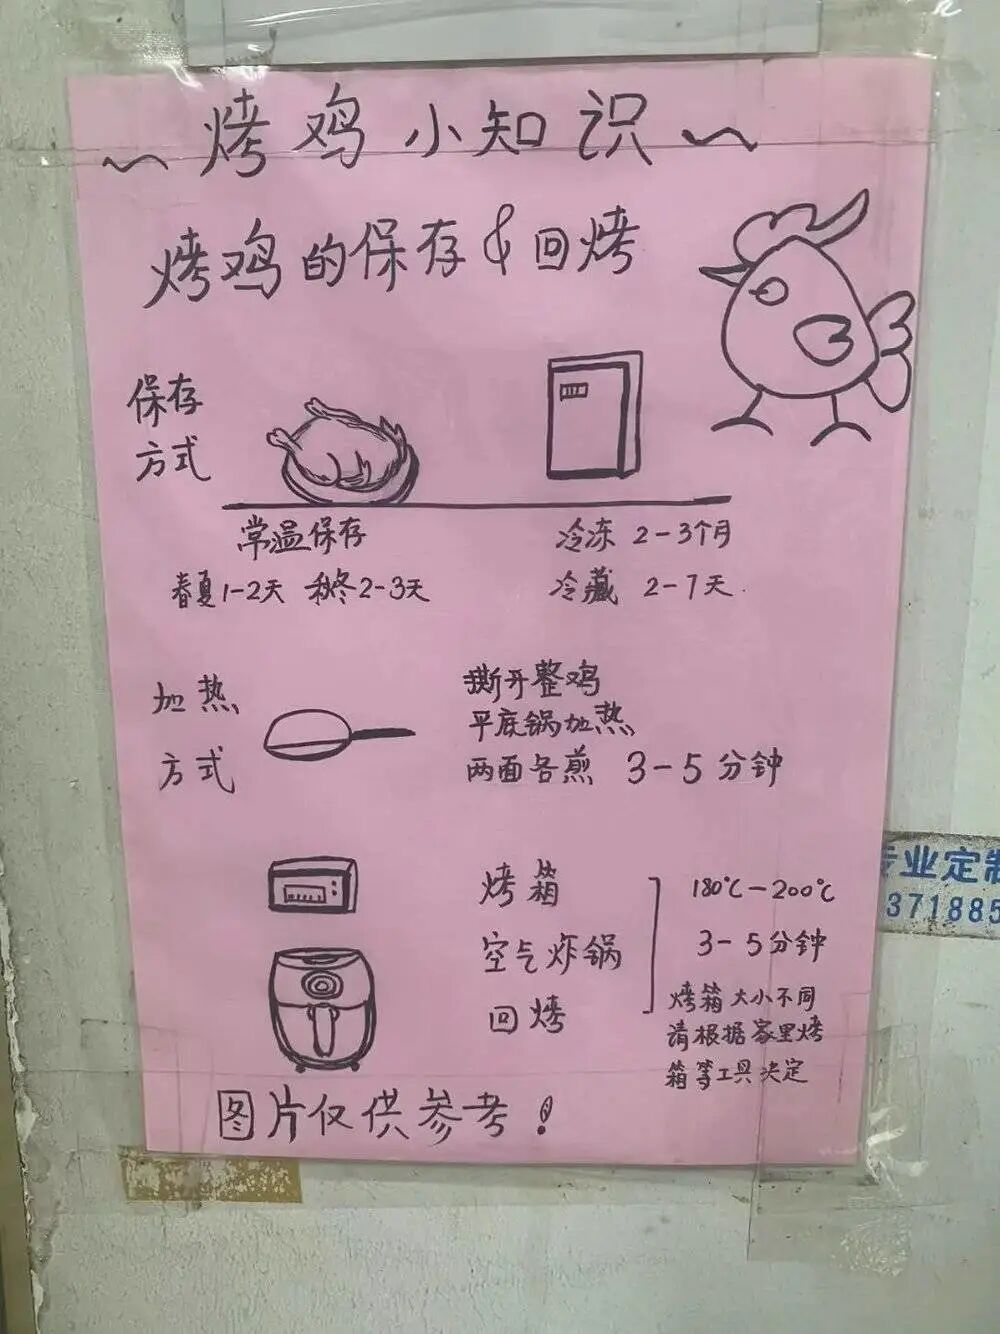 ～烤鸡小知识～
烤鸡的保存&回烤
保存
方式
常温保存
春夏1-2天 秋冬2-3天
冷冻 2-3个月
冷藏 2-7天.
加热
方式
撕开整鸡
平底锅加热
两面各煎 3-5分钟
烤箱
空气炸锅
回烤
180℃-200℃
3-5分钟
烤箱大小不同
请根据家里烤
箱等工具决定
图片仅供参考!
专业定制
371885